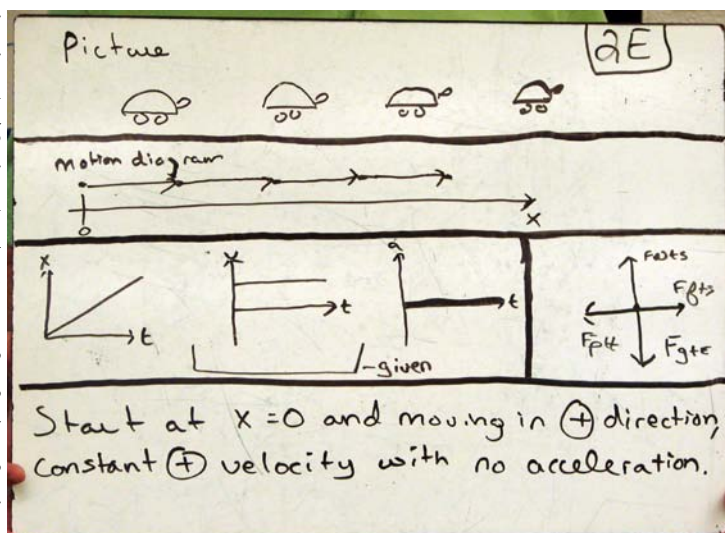 Picture
2E
motion diagram
0
x
x
t
t
a
t
-given
Start at x=0 and moving in + direction,
constant + velocity with no acceleration.